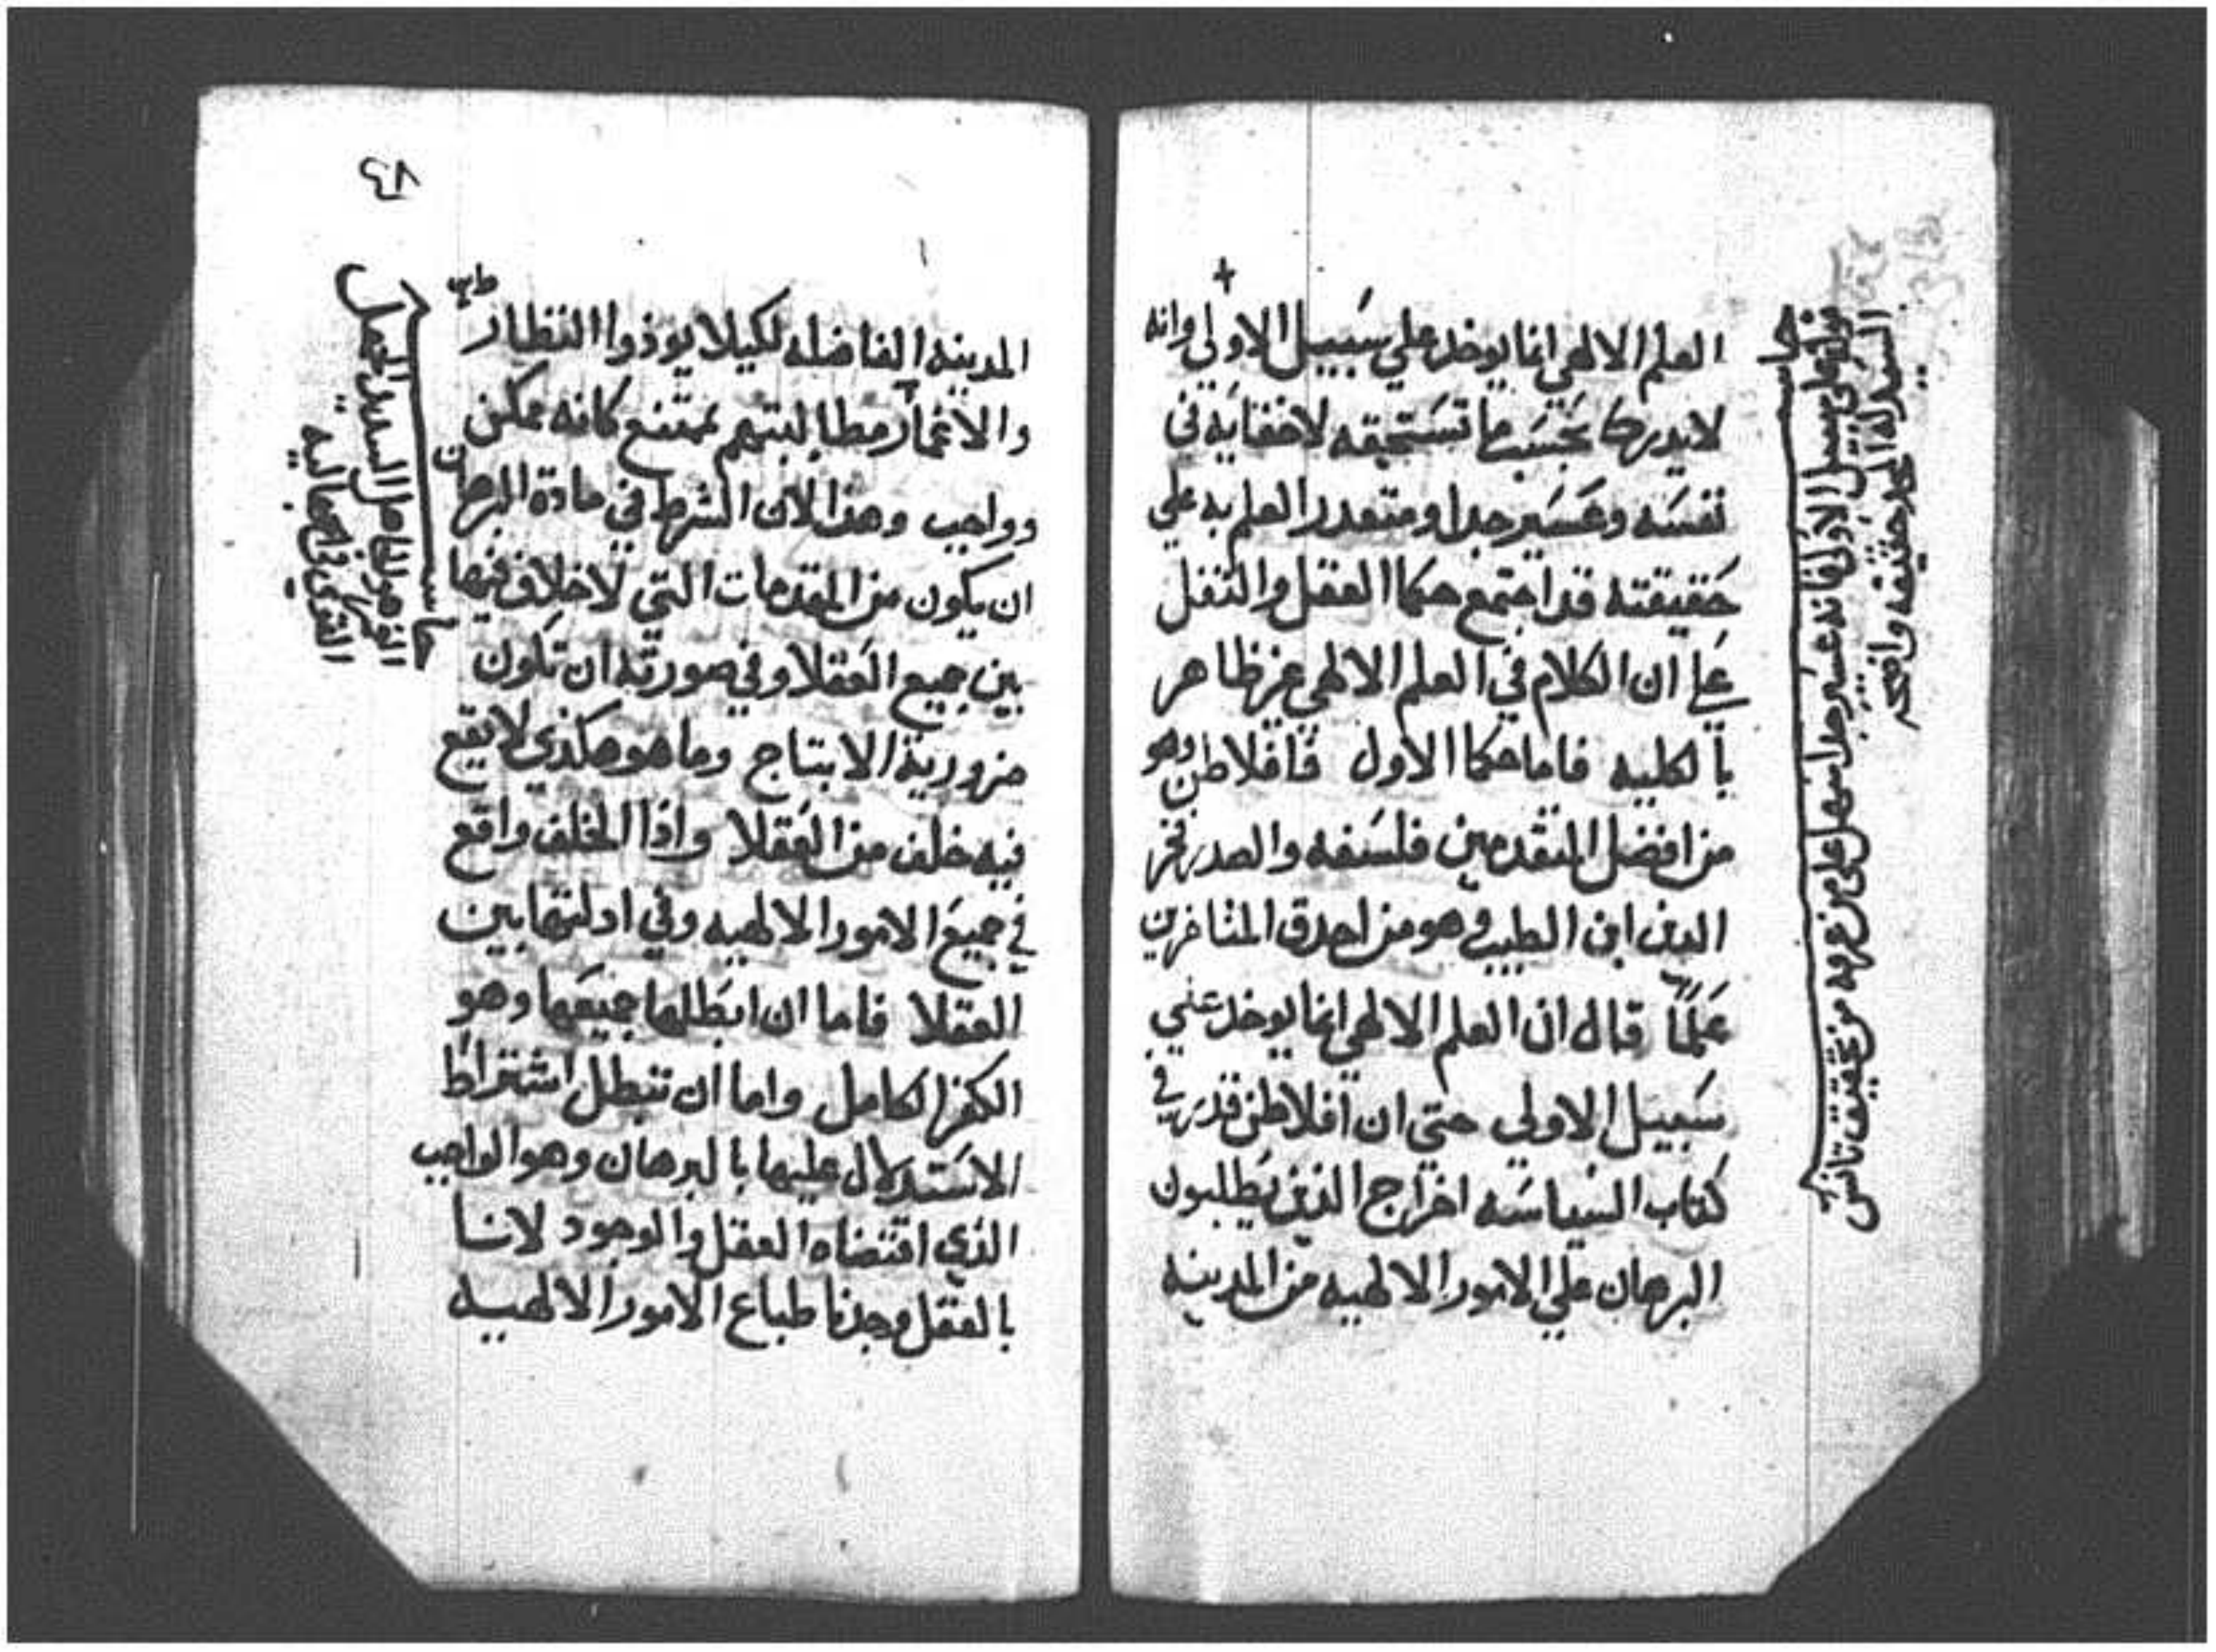 العلم الالهي انما يوخد علي سَبيل الاولي وانه
لا يدركا بحسَب ما تسَتحقه لاخفايه في
نفسَه وعسَير جدا ومتعدر العلم به علي
حَقيقته قد اجتمع حكما العقل والنقل
علي ان الكلام في العلم الالهي عز ظاهر
بالكليه فاما حكما الاول فافلاطن وهو
من افضل المتقدمين فلسَفه والصدر فخر
الدين ابن الطيب وهو من اصدق المتاخرين
عَلماً قال ان العلم الالهي انما يوخد عني
سَبيل الاولي حتي ان افلاطن قدر في
كتاب السَياسَه اخراج الذين يَطلبون
البرهان علي الامور الالهيه من المدينه
حاسـ
قوله علي سبيل الاولي فانه عسَير جدا سهل علي من عرفه من تحقيق تانس
السَيد له المجد حقيقه واضحه
٨٤
المدينه الفاضله لكيلا يوذوا النظار
والاغمار مطالبتهم بممتنع كانه ممكن
وواجب وهذا لان الشرط في مادة البرهان
ان يكون من المقدمات التي لا خلاف فيها
بين جميع العَقلا وفي صورته ان تكون
ضرورية الانتاج وما هو هكذي لا يقع
فيه خلف من العَقلا واذا الخلف واقع
في جميعَ الامور الالهيه وفي ادلتها بين
العقلا فاما ان ابَطلها جميعَها وهو
الكفر الكامل واما ان تبطل اشتراط
الاسَتدلال عليها بالبرهان وهو الواجب
الذي اقتضاه العقل والوجود لاننا
بالعقل وجدنا طباع الامور الالهيه
حاسـ